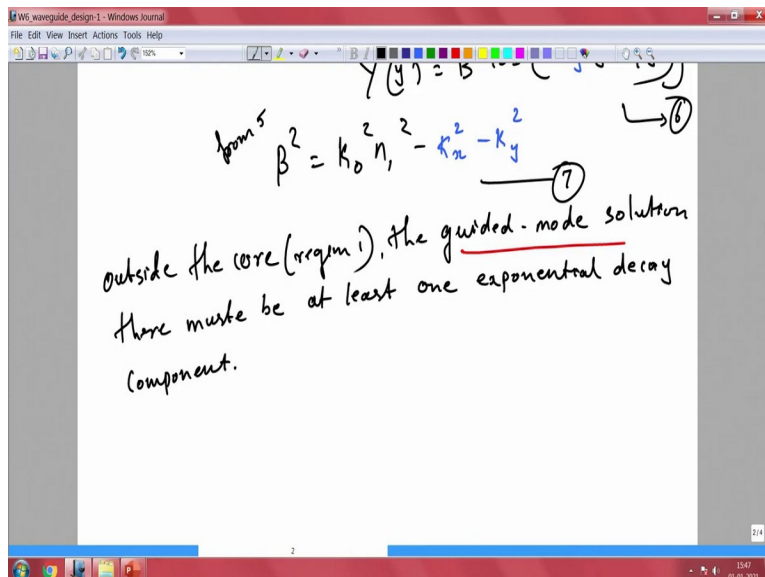 W6_waveguide_design-1 - Windows Journal
File Edit View Insert Actions Tools Help
152%
Y(y) = B
6
from 5 β² = k₀² n₁² - Kx² - Ky²
7
outside the core (region 1), the guided-mode solution
there muste be at least one exponential decay
component.
2/4
2
15:47
01-01-2021